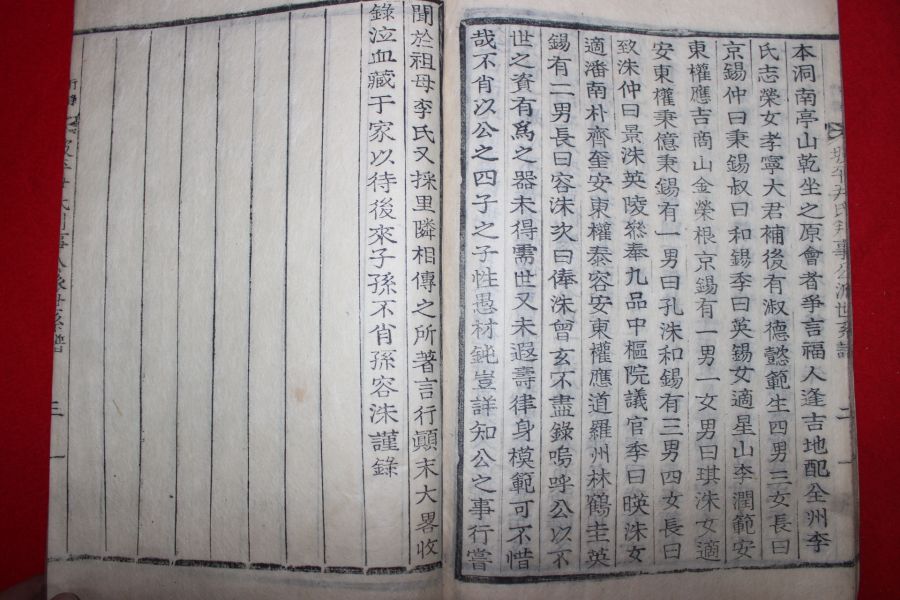 本洞南亭山乾坐之原會者爭言福人逢吉地配全州李
氏志榮女孝寧大君補後有淑德懿範生四男三女長曰
京錫仲曰秉錫叔曰和錫季曰英錫女適星山李潤範安
東權應吉商山金榮根京錫有一男一女男曰琪洙女適
安東權秉億秉錫有一男曰孔洙和錫有三男四女長曰
致洙仲曰景洙英陵叅奉九品中樞院議官季曰暎洙女
適潘南朴齊奎安東權泰容安東權應道羅州林鶴圭英
錫有二男長曰容洙次曰俸洙曾玄不盡錄嗚呼公以不
世之資有爲之器未得需世又未遐壽律身模範可不惜
哉不肖以公之四子之子性愚材鈍豈詳知公之事行嘗
聞於祖母李氏又採里隣相傳之所著言行顚末大畧收
錄泣血藏于家以待後來子孫不肖孫容洙謹錄
二
三